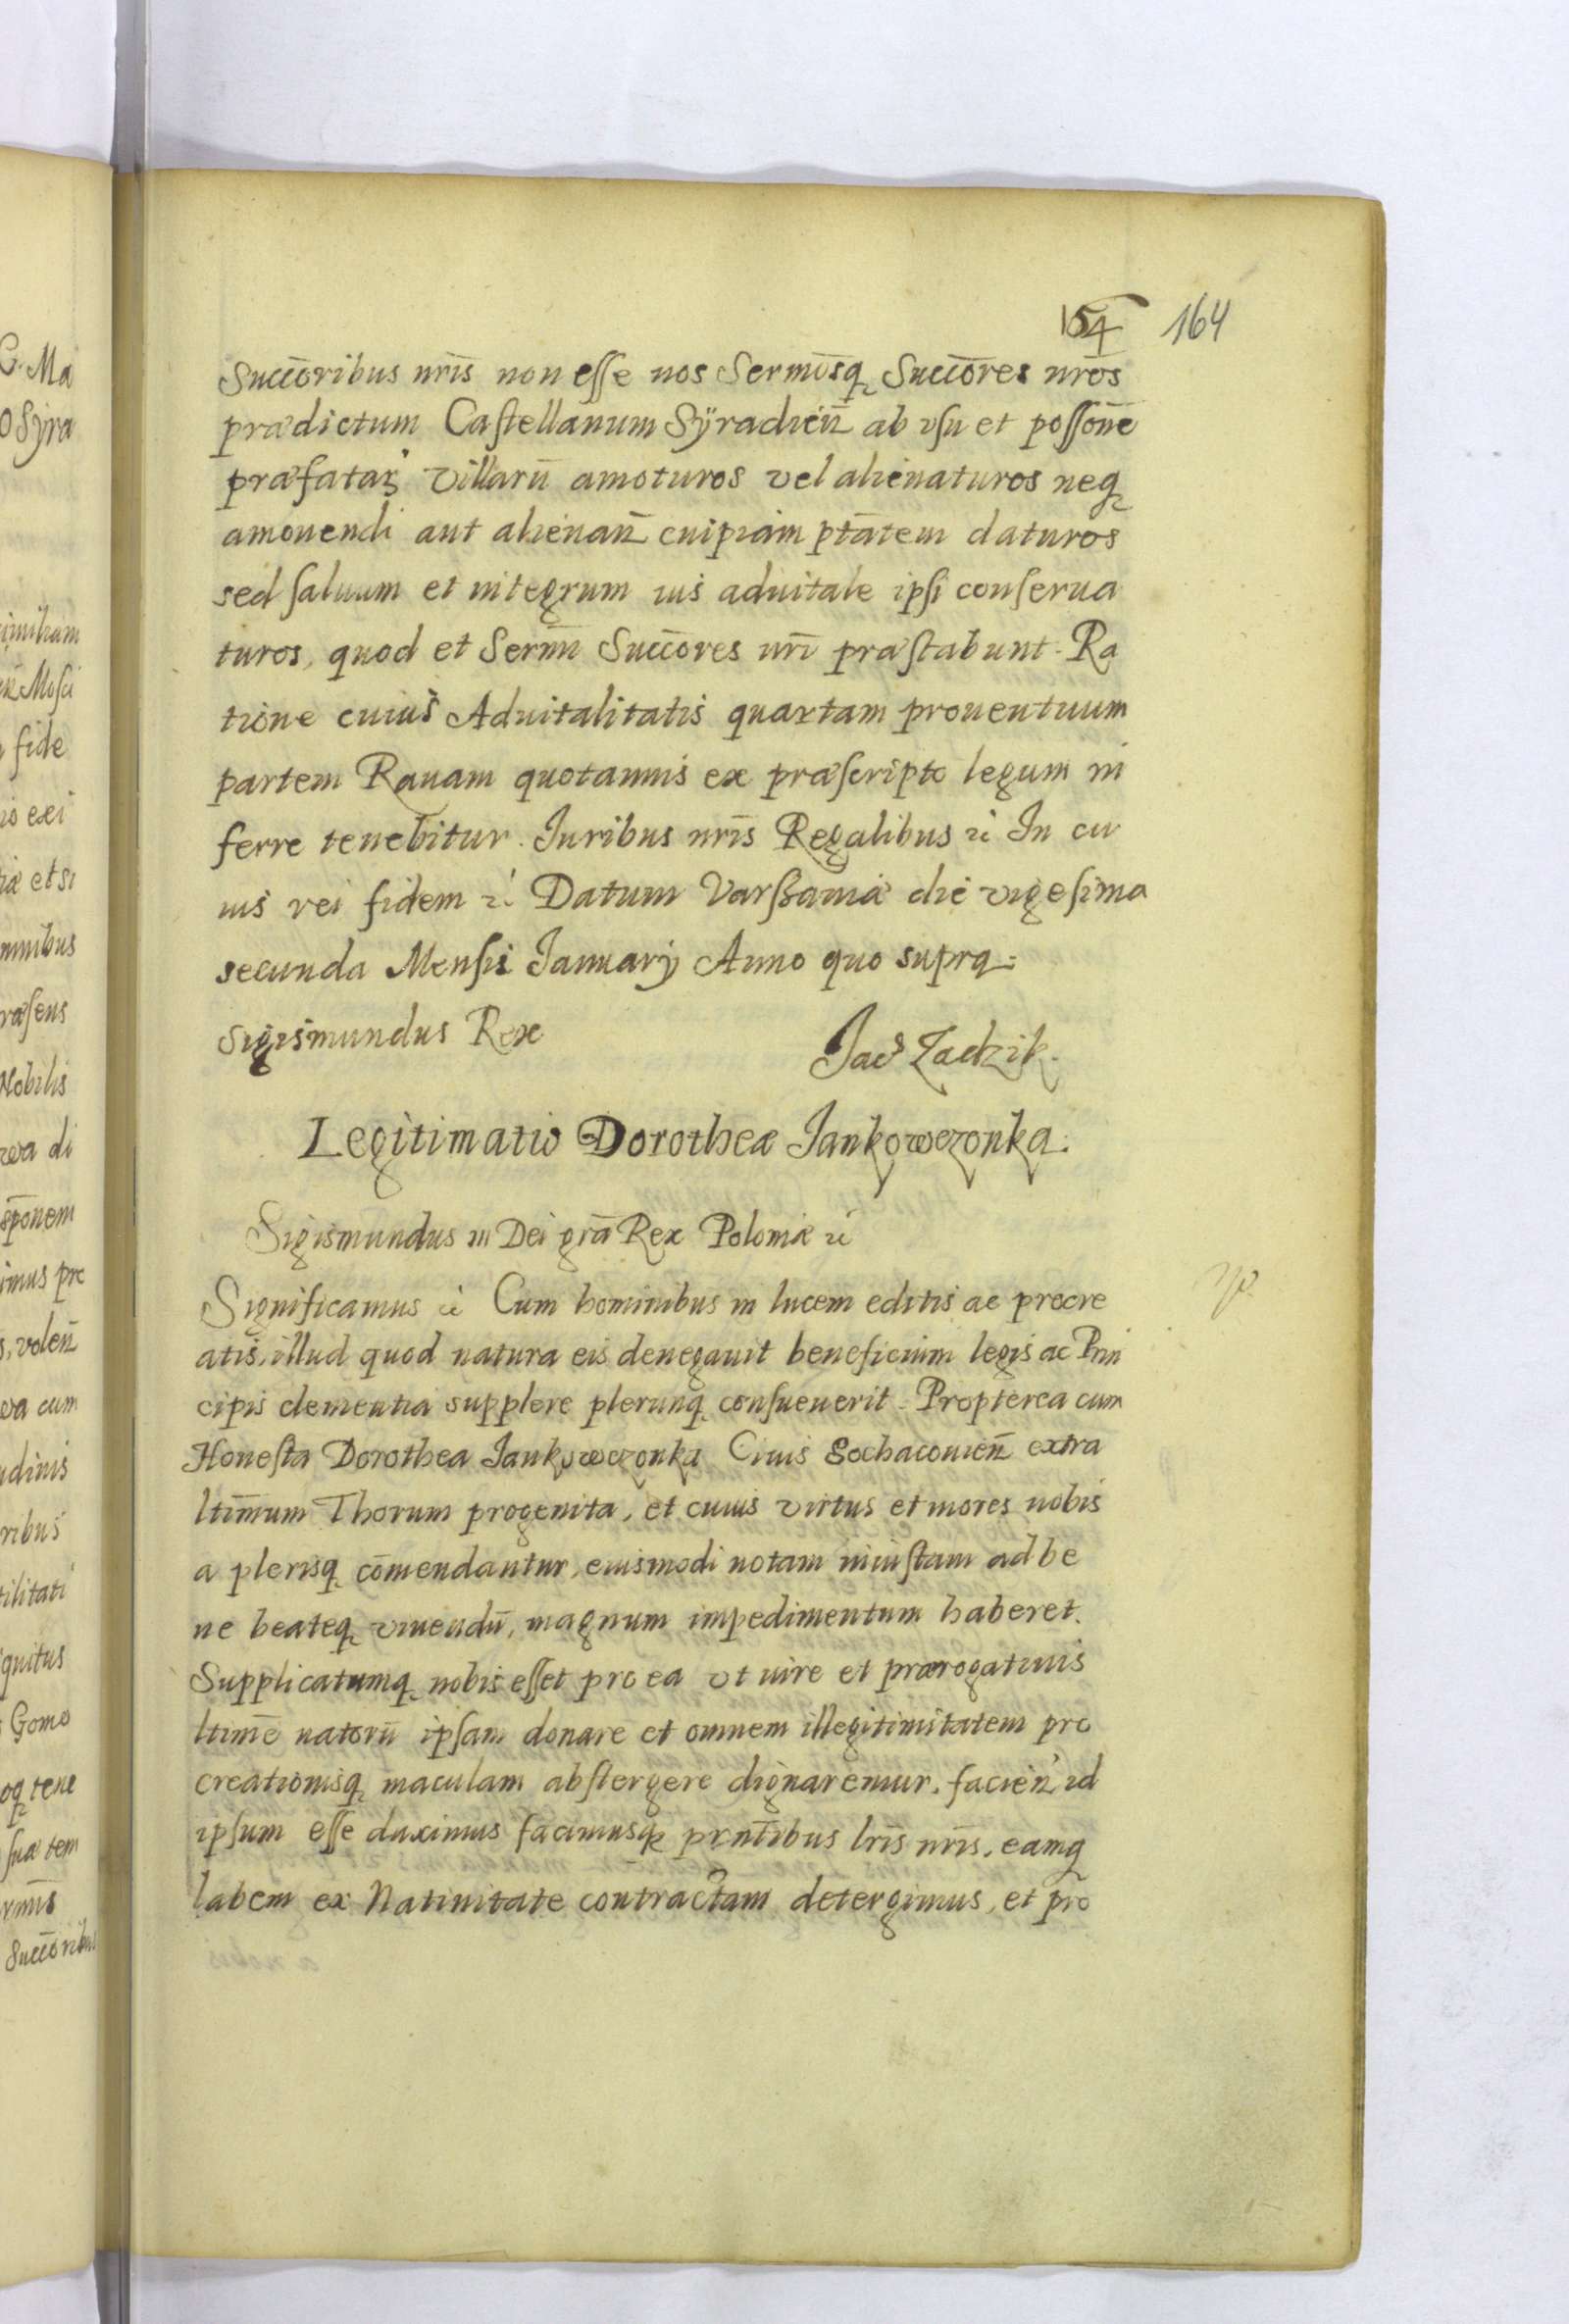 154 164
Succōribus nr̄is non esse nos Sermōsq̨ Succōres nr̄os
prædictum Castellanum Sÿradien̄ ab vsu et possōne
præfataꝝ Villarū amoturos vel alienaturos neq̨
amouendi aut alienan̄ cuipiam ptātem daturos
sed saluum et integrum ius aduitale ipsi conserua
turos, quod et Sermī Succōres nr̄i præstabunt. Ra
tione cuius Aduitalitatis quartam prouentuum
partem Rauam quotannis ex præscripto legum in
ferre tenebitur. Iuribus nr̄is Regalibus ꝛc̄ In cu
ius rei fidem ꝛc̄ Datum Varszauiæ die vigesima
secunda Mensis Ianuarÿ Anno quo supra.
Sigismundus Rex Jac Zadzik.
Legitimatio Dorotheæ Iankowczonka.
Sigismundus III Dei grā Rex Poloniæ ꝛc̄
Significamus ꝛc̄ Cum hominibus in lucem editis ac procre
atis, illud quod natura eis denegauit beneficium legis ac Prin
cipis clementia supplere plerunq̨ consueuerit. Propterea cum
Honesta Dorothea Iankowczonka Ciuis Sochaconien̄ extra
ltīmum Thorum progenita, et cuius virtus et mores nobis
a plerisq̨ cōmendantur, eiusmodi notam iniustam ad be
ne beateq̨ viuendū, magnum impedimentum haberet.
Supplicatumq̨ nobis esset pro ea vt iure et prærogatiuis
ltīme natorū ipsam donare et omnem illegitimitatem pro
creationisq̨ maculam abstergere dignaremur. facien̄ id
ipsum esse duximus facimusq̨ prn̄tibus lr̄is nr̄is, eamq̨
labem ex Natiuitate contractam detergimus, et pro